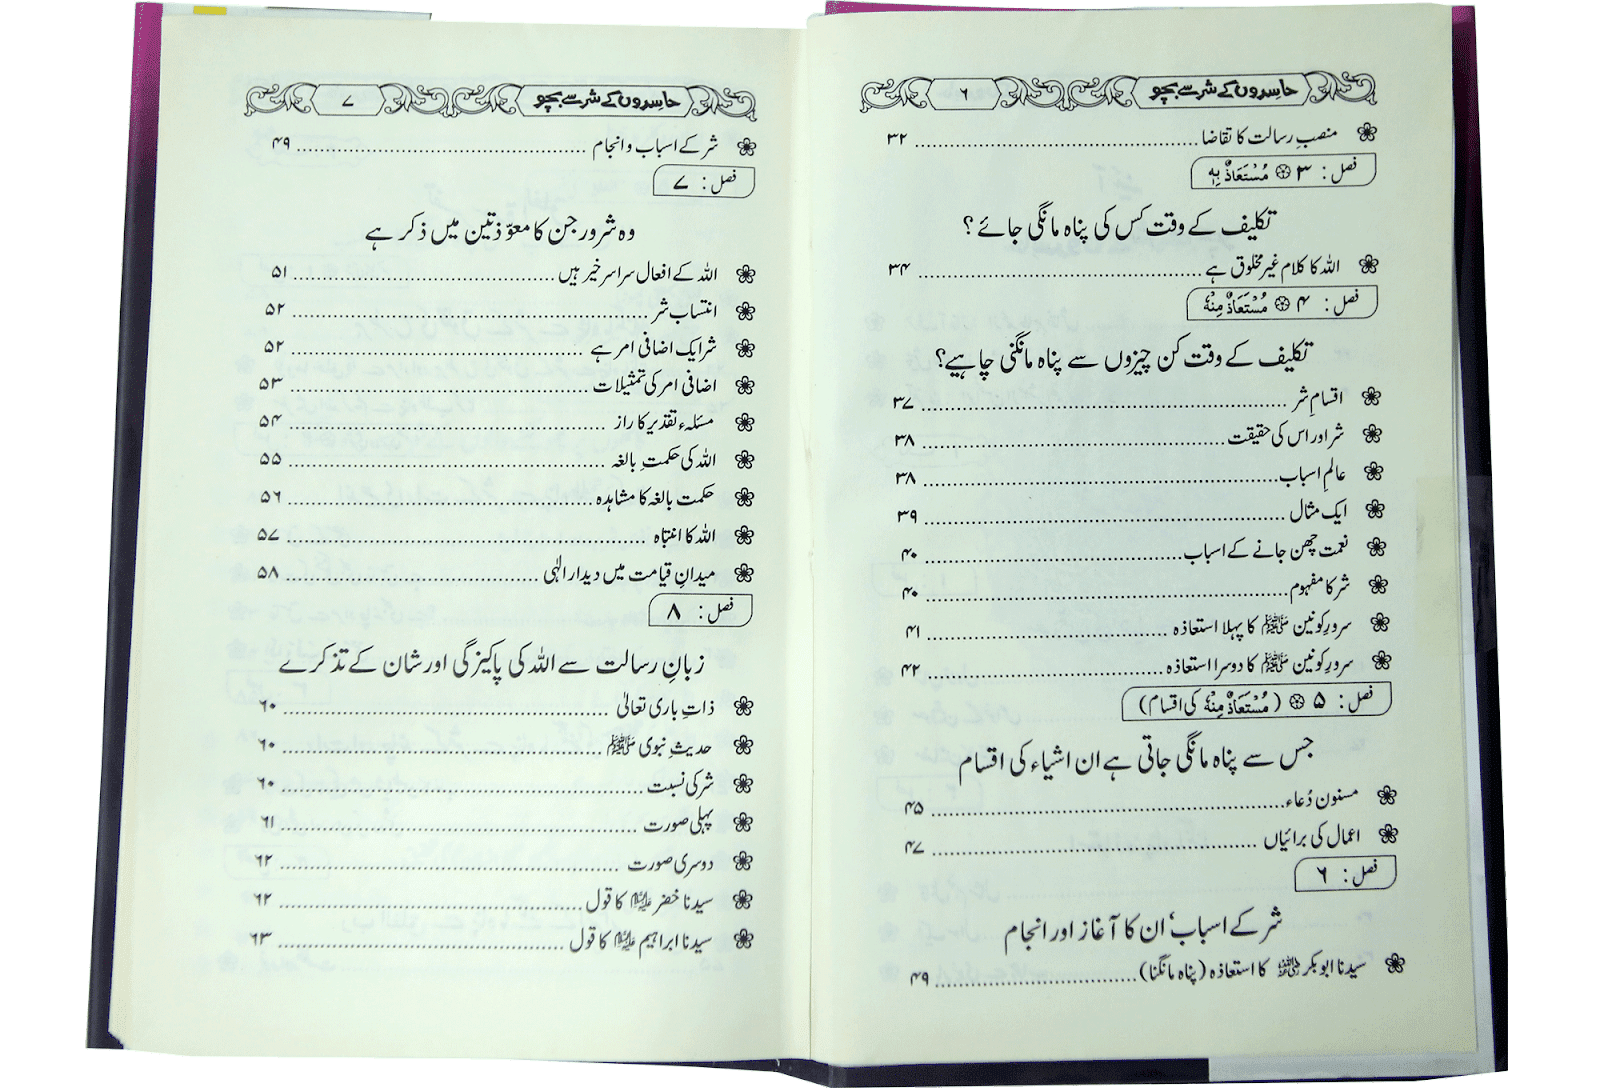 حاسدوں کے شر سے بچو ۶
منصبِ رسالت کا تقاضا ۳۲
فصل: ۳ مُسْتَعَاذٌ بِهٖ
تکلیف کے وقت کس کی پناہ مانگی جائے؟
اللہ کا کلام غیر مخلوق ہے ۳۴
فصل: ۴ مُسْتَعَاذٌ مِنْهُ
تکلیف کے وقت کن چیزوں سے پناہ مانگنی چاہیے؟
اقسامِ شر ۳۷
شر اور اس کی حقیقت ۳۸
عالمِ اسباب ۳۸
ایک مثال ۳۹
نعمت چھن جانے کے اسباب ۴۰
شر کا مفہوم ۴۰
سرورِ کونین ﷺ کا پہلا استعاذہ ۴۱
سرورِ کونین ﷺ کا دوسرا استعاذہ ۴۲
فصل: ۵ (مُسْتَعَاذٌ مِنْهُ کی اقسام)
جس سے پناہ مانگی جاتی ہے ان اشیاء کی اقسام
مسنون دُعاء ۴۵
اعمال کی برائیاں ۴۷
فصل: ۶
شر کے اسباب، ان کا آغاز اور انجام
سیدنا ابوبکر رضی اللہ عنہ کا استعاذہ (پناہ مانگنا) ۴۹
حاسدوں کے شر سے بچو ۷
شر کے اسباب و انجام ۴۹
فصل: ۷
وہ شرور جن کا معوّذتین میں ذکر ہے
اللہ کے افعال سراسر خیر ہیں ۵۱
انتساب شر ۵۲
شر ایک اضافی امر ہے ۵۲
اضافی امر کی تمثیلات ۵۳
مسئلہء تقدیر کا راز ۵۴
اللہ کی حکمتِ بالغہ ۵۵
حکمت بالغہ کا مشاہدہ ۵۶
اللہ کا انتباہ ۵۷
میدانِ قیامت میں دیدار الٰہی ۵۸
فصل: ۸
زبانِ رسالت سے اللہ کی پاکیزگی اور شان کے تذکرے
ذاتِ باری تعالیٰ ۶۰
حدیثِ نبوی ﷺ ۶۰
شر کی نسبت ۶۰
پہلی صورت ۶۱
دوسری صورت ۶۲
سیدنا خضر علیہ السلام کا قول ۶۲
سیدنا ابراہیم علیہ السلام کا قول ۶۳